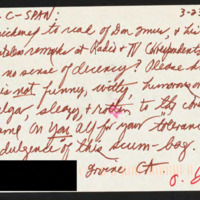 C-SPAN: 3-23
sickened to read of Don Imus, & his
tasteless remarks at Radio & TV Correspondents
no sense of decency? Please
is not funny, witty, humorous or
vulgar, sleazy, & rotten to the core
Shame on you all for your "tolerance
indulgence of this scum-bag.
Irvine CA